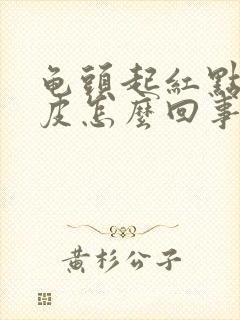 龟頭起紅點
皮怎麼回事
黃杉公子